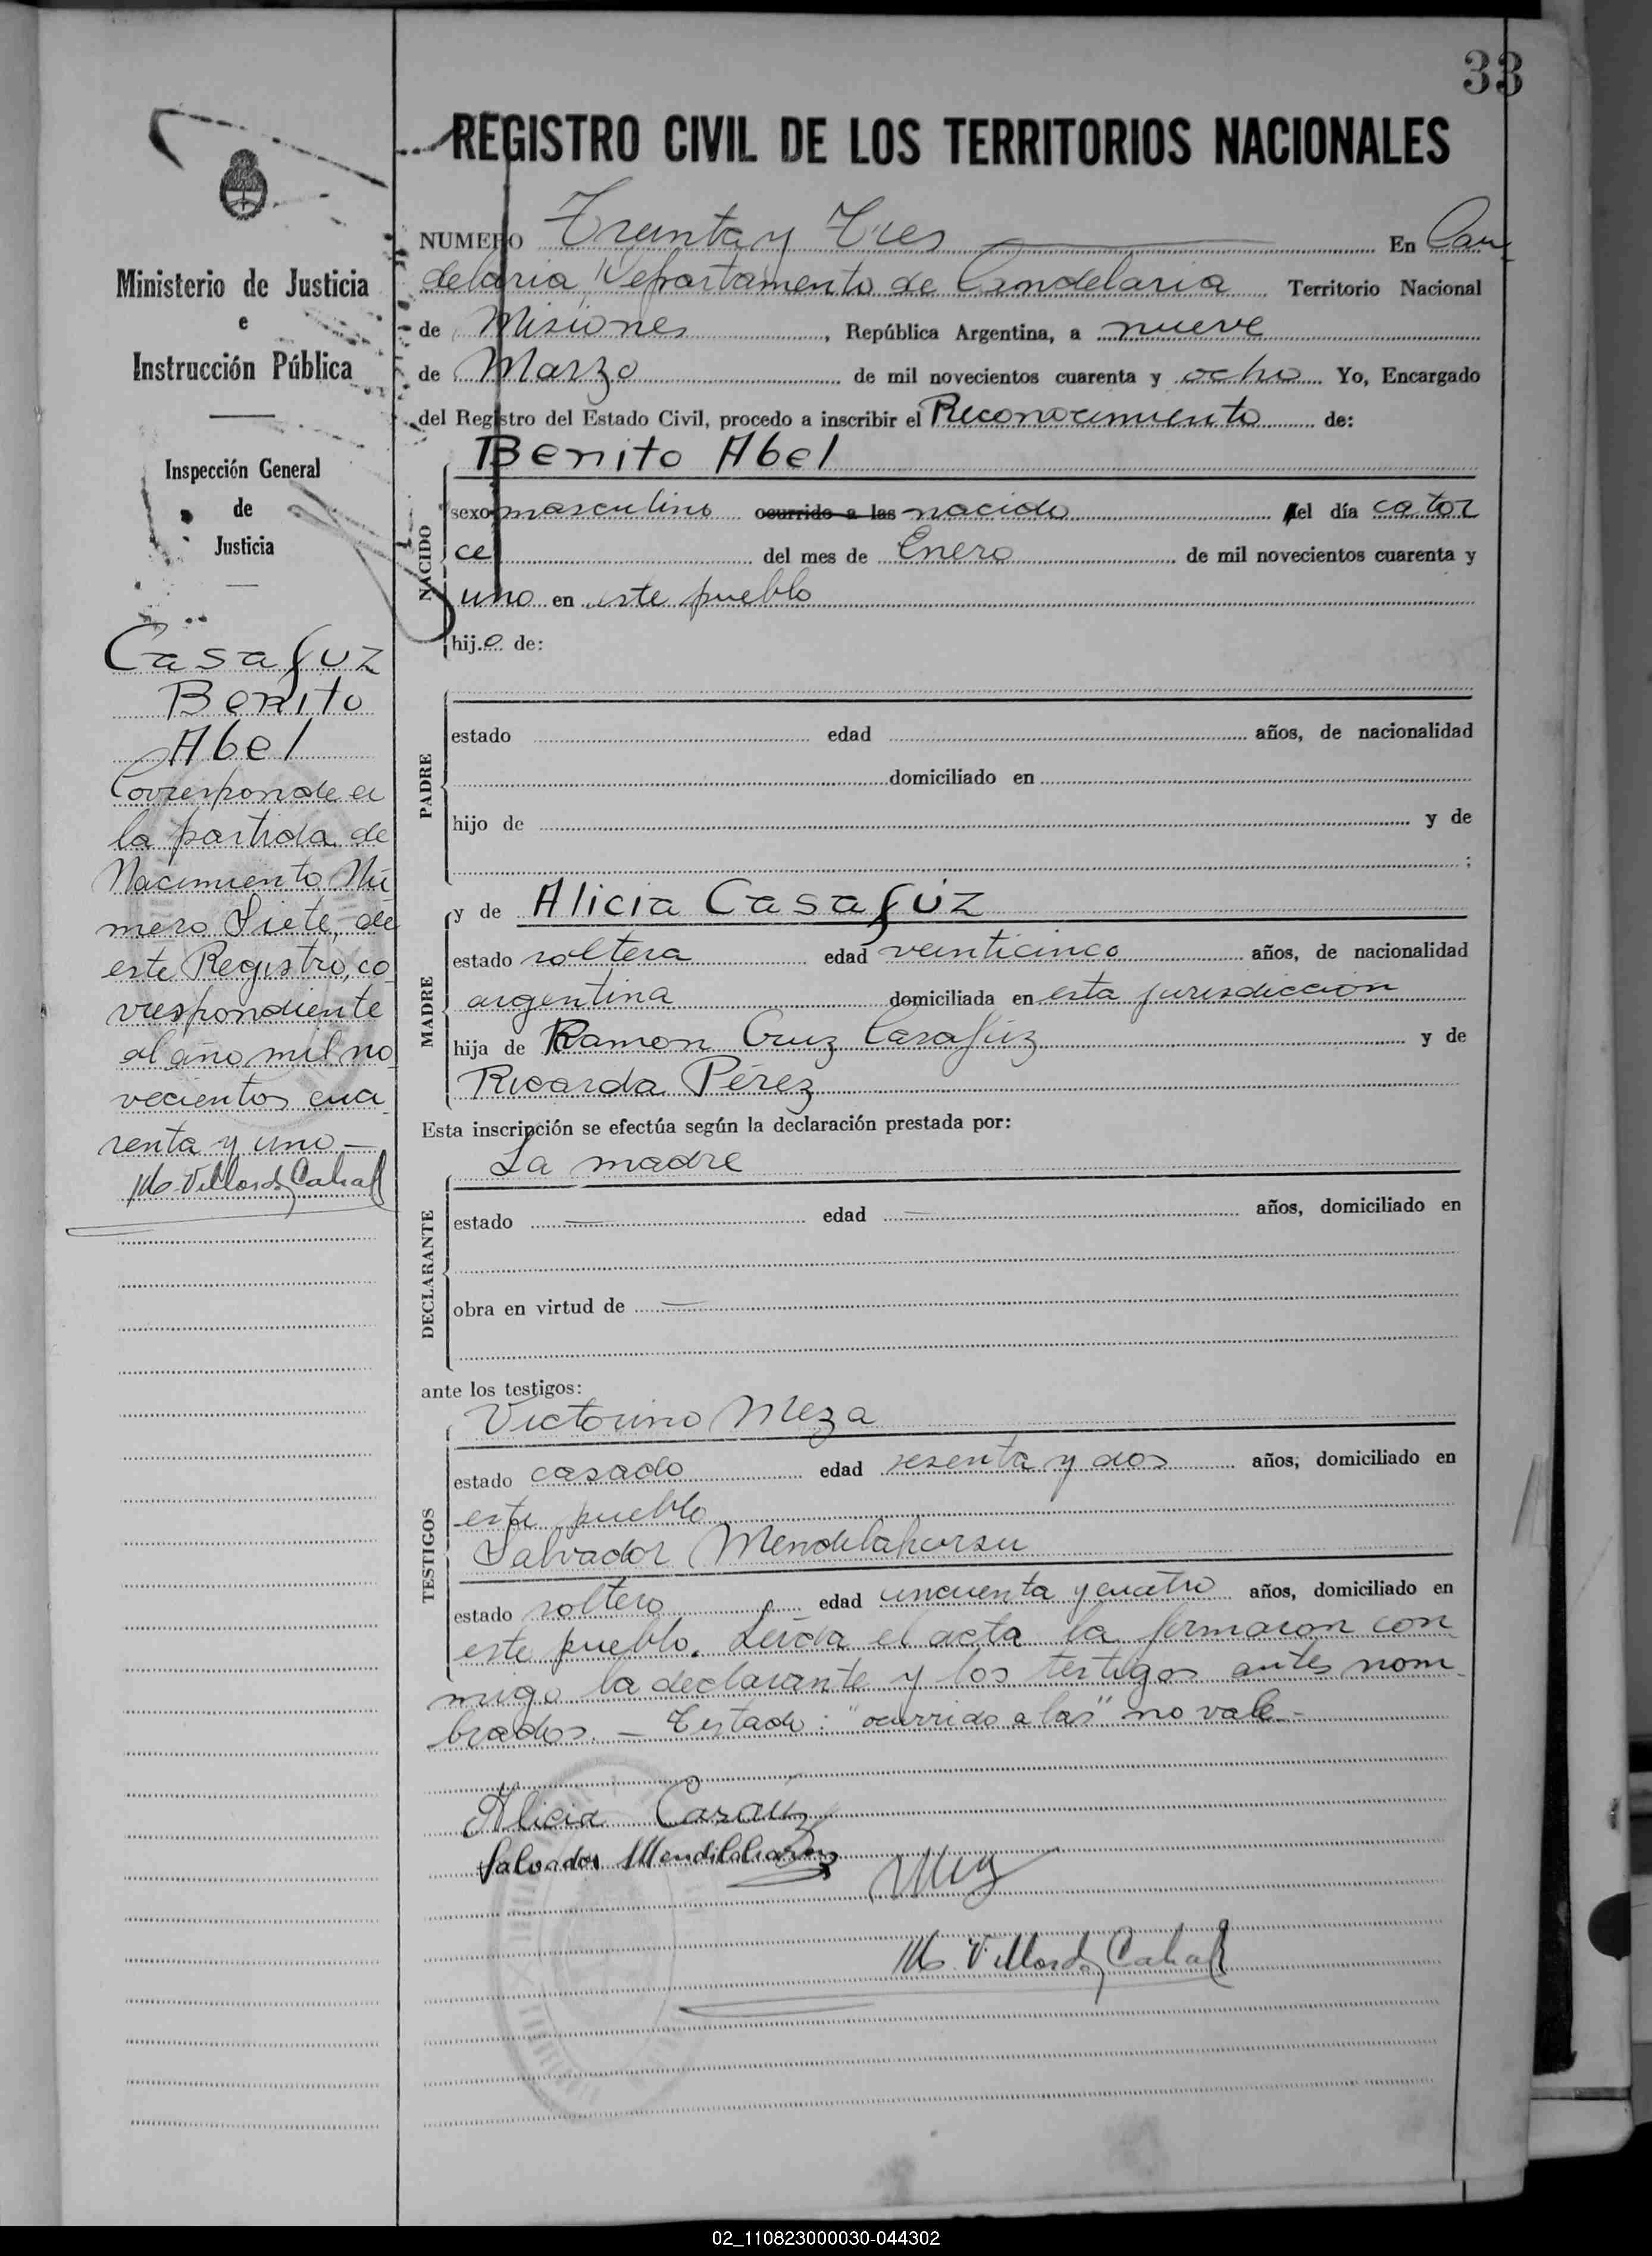 33
REGISTRO CIVIL DE LOS TERRITORIOS NACIONALES
NUMERO Treinta y Tres En Can
delaria, Departamento de Candelaria Territorio Nacional
de Misiones, República Argentina, a nueve
de Marzo de mil novecientos cuarenta y ocho Yo, Encargado
del Registro del Estado Civil, procedo a inscribir el Reconocimiento de:
Benito Abel
NACIDO
sexo masculino ocurrido a las nacido el día cator
ce del mes de Enero de mil novecientos cuarenta y
uno en este pueblo
hijo de:
PADRE
estado edad años, de nacionalidad
domiciliado en
hijo de y de
;
MADRE
y de Alicia Casafúz
estado soltera edad veinticinco años, de nacionalidad
argentina domiciliada en esta jurisdiccion
hija de Ramon Cruz Casafúz y de
Ricarda Pérez
Esta inscripción se efectúa según la declaración prestada por:
La madre
DECLARANTE
estado — edad — años, domiciliado en
obra en virtud de —
ante los testigos:
TESTIGOS
Victorino Meza
estado casado edad sesenta y dos años, domiciliado en
este pueblo
Salvador Mendilaharsu
estado soltero edad cincuenta y cuatro años, domiciliado en
este pueblo. Leida el acta la firmaron con
migo la declarante y los testigos antes nom
brados. — Testado: "ocurrido a las" no vale-
Alicia
Salvador
Ministerio de Justicia
e
Instrucción Pública
Inspección General
de
Justicia
Casafuz
Benito
Abel
Corresponde a
la partida de
Nacimiento Nú
mero Siete, de
este Registro, co
rrespondiente
al año mil no
vecientos cua
renta y uno —
02_110823000030-044302